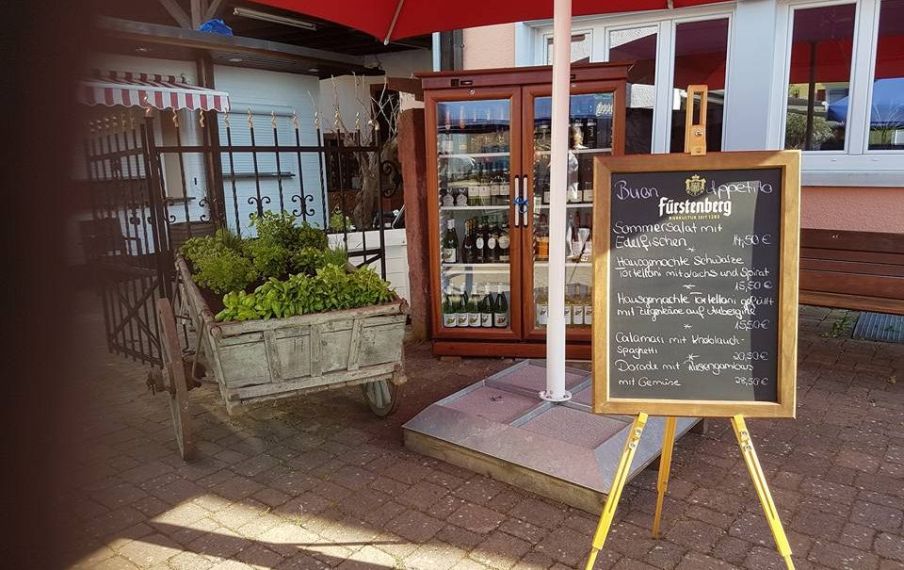 Buon Appetito
Fürstenberg
BIERKULTUR SEIT 1283
Sommersalat mit
Edelfischen 14,50 €
*
Hausgemachte Schwarze
Tortelloni mit Lachs und Spinat
*
15,50 €
Hausgemachte Tortelloni gefüllt
mit Ziegenkäse auf Aubergine
* 15,50 €
Calamari mit Knoblauch-
Spaghetti * 20,50 €
Dorade mit Riesengambas
mit Gemüse 28,50 €